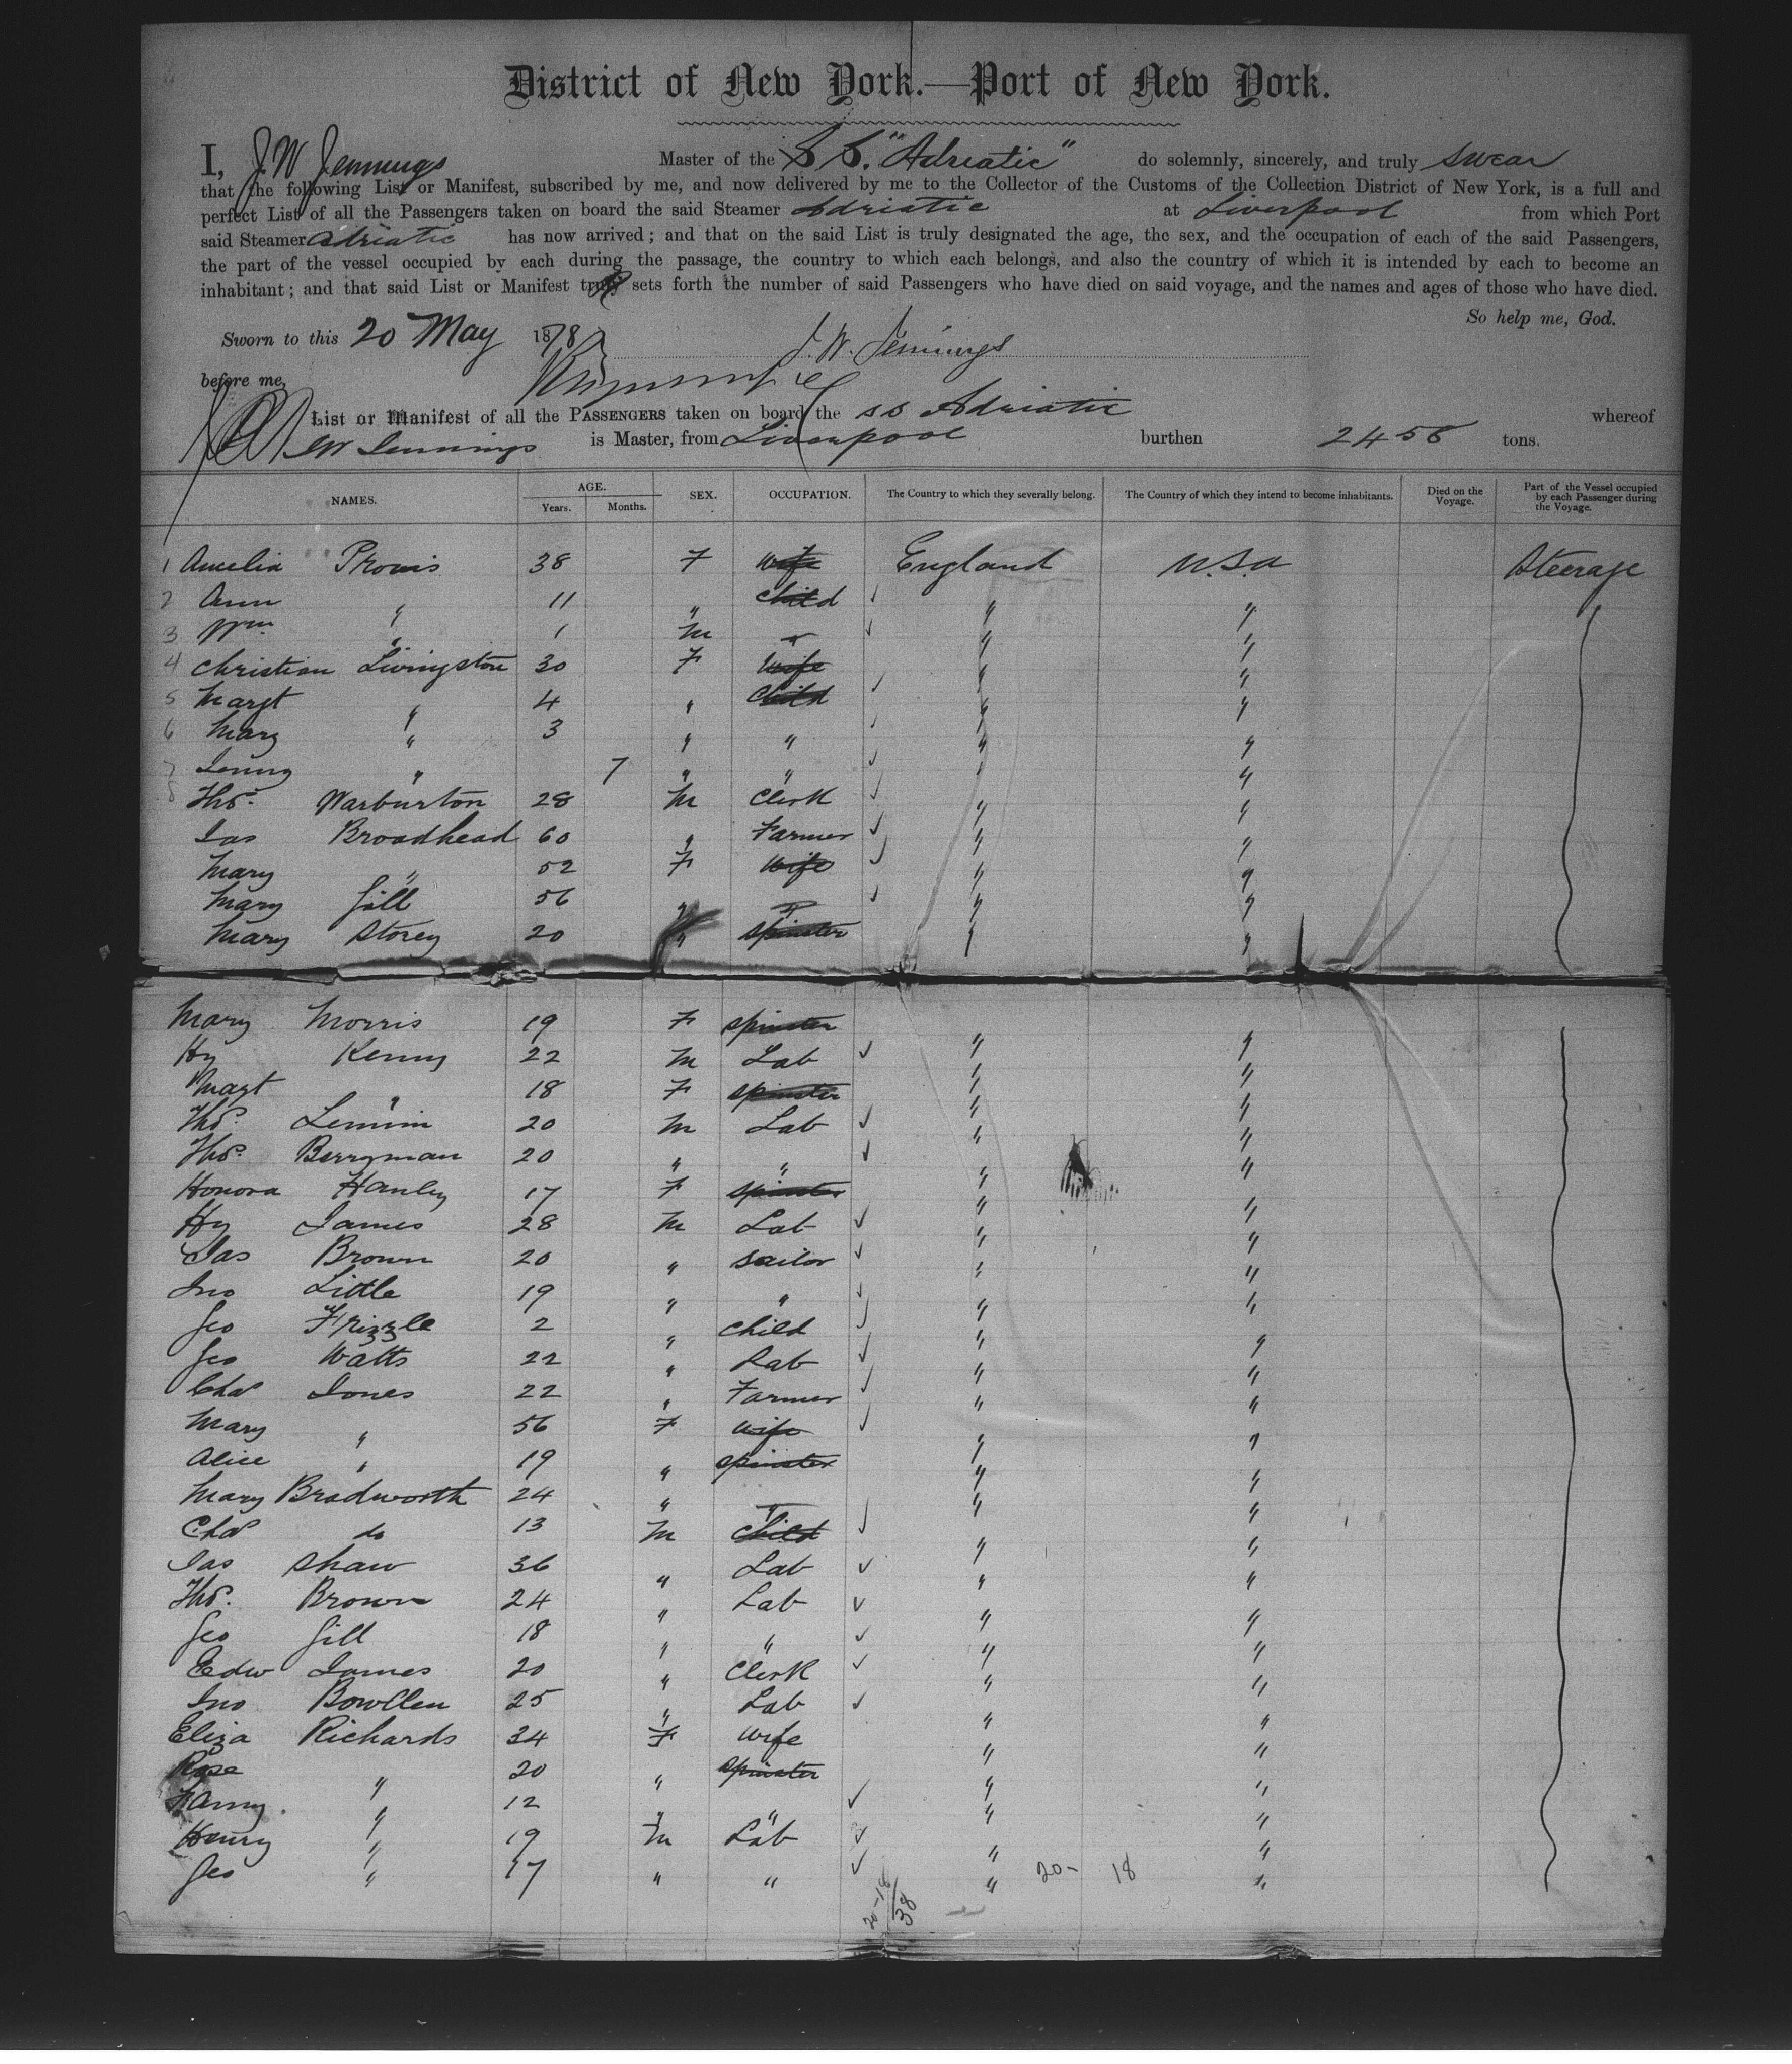 District of New York.—Port of New York.
I, J. W. Jennings Master of the S S. "Adriatic" do solemnly, sincerely, and truly swear
that the following List or Manifest, subscribed by me, and now delivered by me to the Collector of the Customs of the Collection District of New York, is a full and
perfect List of all the Passengers taken on board the said Steamer Adriatic at Liverpool from which Port
said Steamer Adriatic has now arrived; and that on the said List is truly designated the age, the sex, and the occupation of each of the said Passengers,
the part of the vessel occupied by each during the passage, the country to which each belongs, and also the country of which it is intended by each to become an
inhabitant; and that said List or Manifest truly sets forth the number of said Passengers who have died on said voyage, and the names and ages of those who have died.
So help me, God.
Sworn to this 20 May 1878 J. W. Jennings
before me,
List or Manifest of all the PASSENGERS taken on board the ss Adriatic whereof
JW Jennings is Master, from Liverpool burthen 2458 tons.
NAMES. AGE. Years. Months. SEX. OCCUPATION. The Country to which they severally belong. The Country of which they intend to become inhabitants. Died on the Voyage. Part of the Vessel occupied by each Passenger during the Voyage.
1 Amelia Provis 38 F wife England U.S.A Steerage
2 Ann " 11 " child " "
3 Wm " 1 M " " "
4 Christian Livingston 30 F wife " "
5 Margt " 4 " child " "
6 Mary " 3 " " " "
7 Jenny " 7 " " " "
8 Thos. Warburton 28 M Clerk " "
Jas Broadhead 60 " Farmer " "
Mary " 52 F wife " "
Mary Gill 56 " " " "
Mary Storey 20 " spinster " "
Mary Morris 19 F spinster " "
Hy Kenny 22 M Lab " "
Margt " 18 F spinster " "
Thos. Lemin 20 M Lab " "
Thos. Berryman 20 " " " "
Honora Hanley 17 F spinster " "
Hy James 28 M Lab " "
Jas Brown 20 " sailor " "
Jno Little 19 " " " "
Geo Frizzle 2 " child " "
Geo Watts 22 " Lab " "
Chas Jones 22 " Farmer " "
Mary " 56 F wife " "
Alice " 19 " spinster " "
Mary Bradworth 24 " " " "
Chas do 13 M child " "
Jas Shaw 36 " Lab " "
Thos. Brown 24 " Lab " "
Geo Gill 18 " " " "
Edw James 20 " Clerk " "
Jno Bowllen 25 " Lab " "
Eliza Richards 34 F wife " "
Rose " 20 " spinster " "
Fanny " 12 " " " "
Henry " 19 M Lab " "
Geo " 17 " " " 20- 18 "
20-18/38